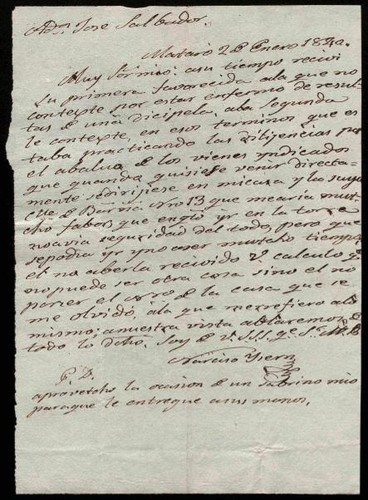 A Dn. Jose Salbador.
Mataró 2 de Enero 1840.
Muy Sor mio: a su tiempo recivi
su primera favorecida a la que no
contexte por estar enfermo de resul
tas de una Dicipela. a la segunda
le contexte, en esos terminos que es
taba practicando las dilijencias pa
el abaluo de los vienes yndicados
que quando quisiese venir directa-
mente se dirijiese en mi casa y la suya
No 13 que me aria mut
cho fabor, que en yr en la torre
no avia seguridad del todo, pero que
se podia yr y no aser mutcho tiempo,
el no aberla recivido V. calculo q.
no puede ser otra cosa sino el no
poner el Nro de la casa que se
me olvidó, a la que me refiero a lo
mismo; a nuestra vista ablaremos de
todo lo dicho. Soy de V. S.S.S. q.
Narciso Ysern
P.D.
aprovetcho la ocasion de un sobrino mio
para que le entregue a sus manos.